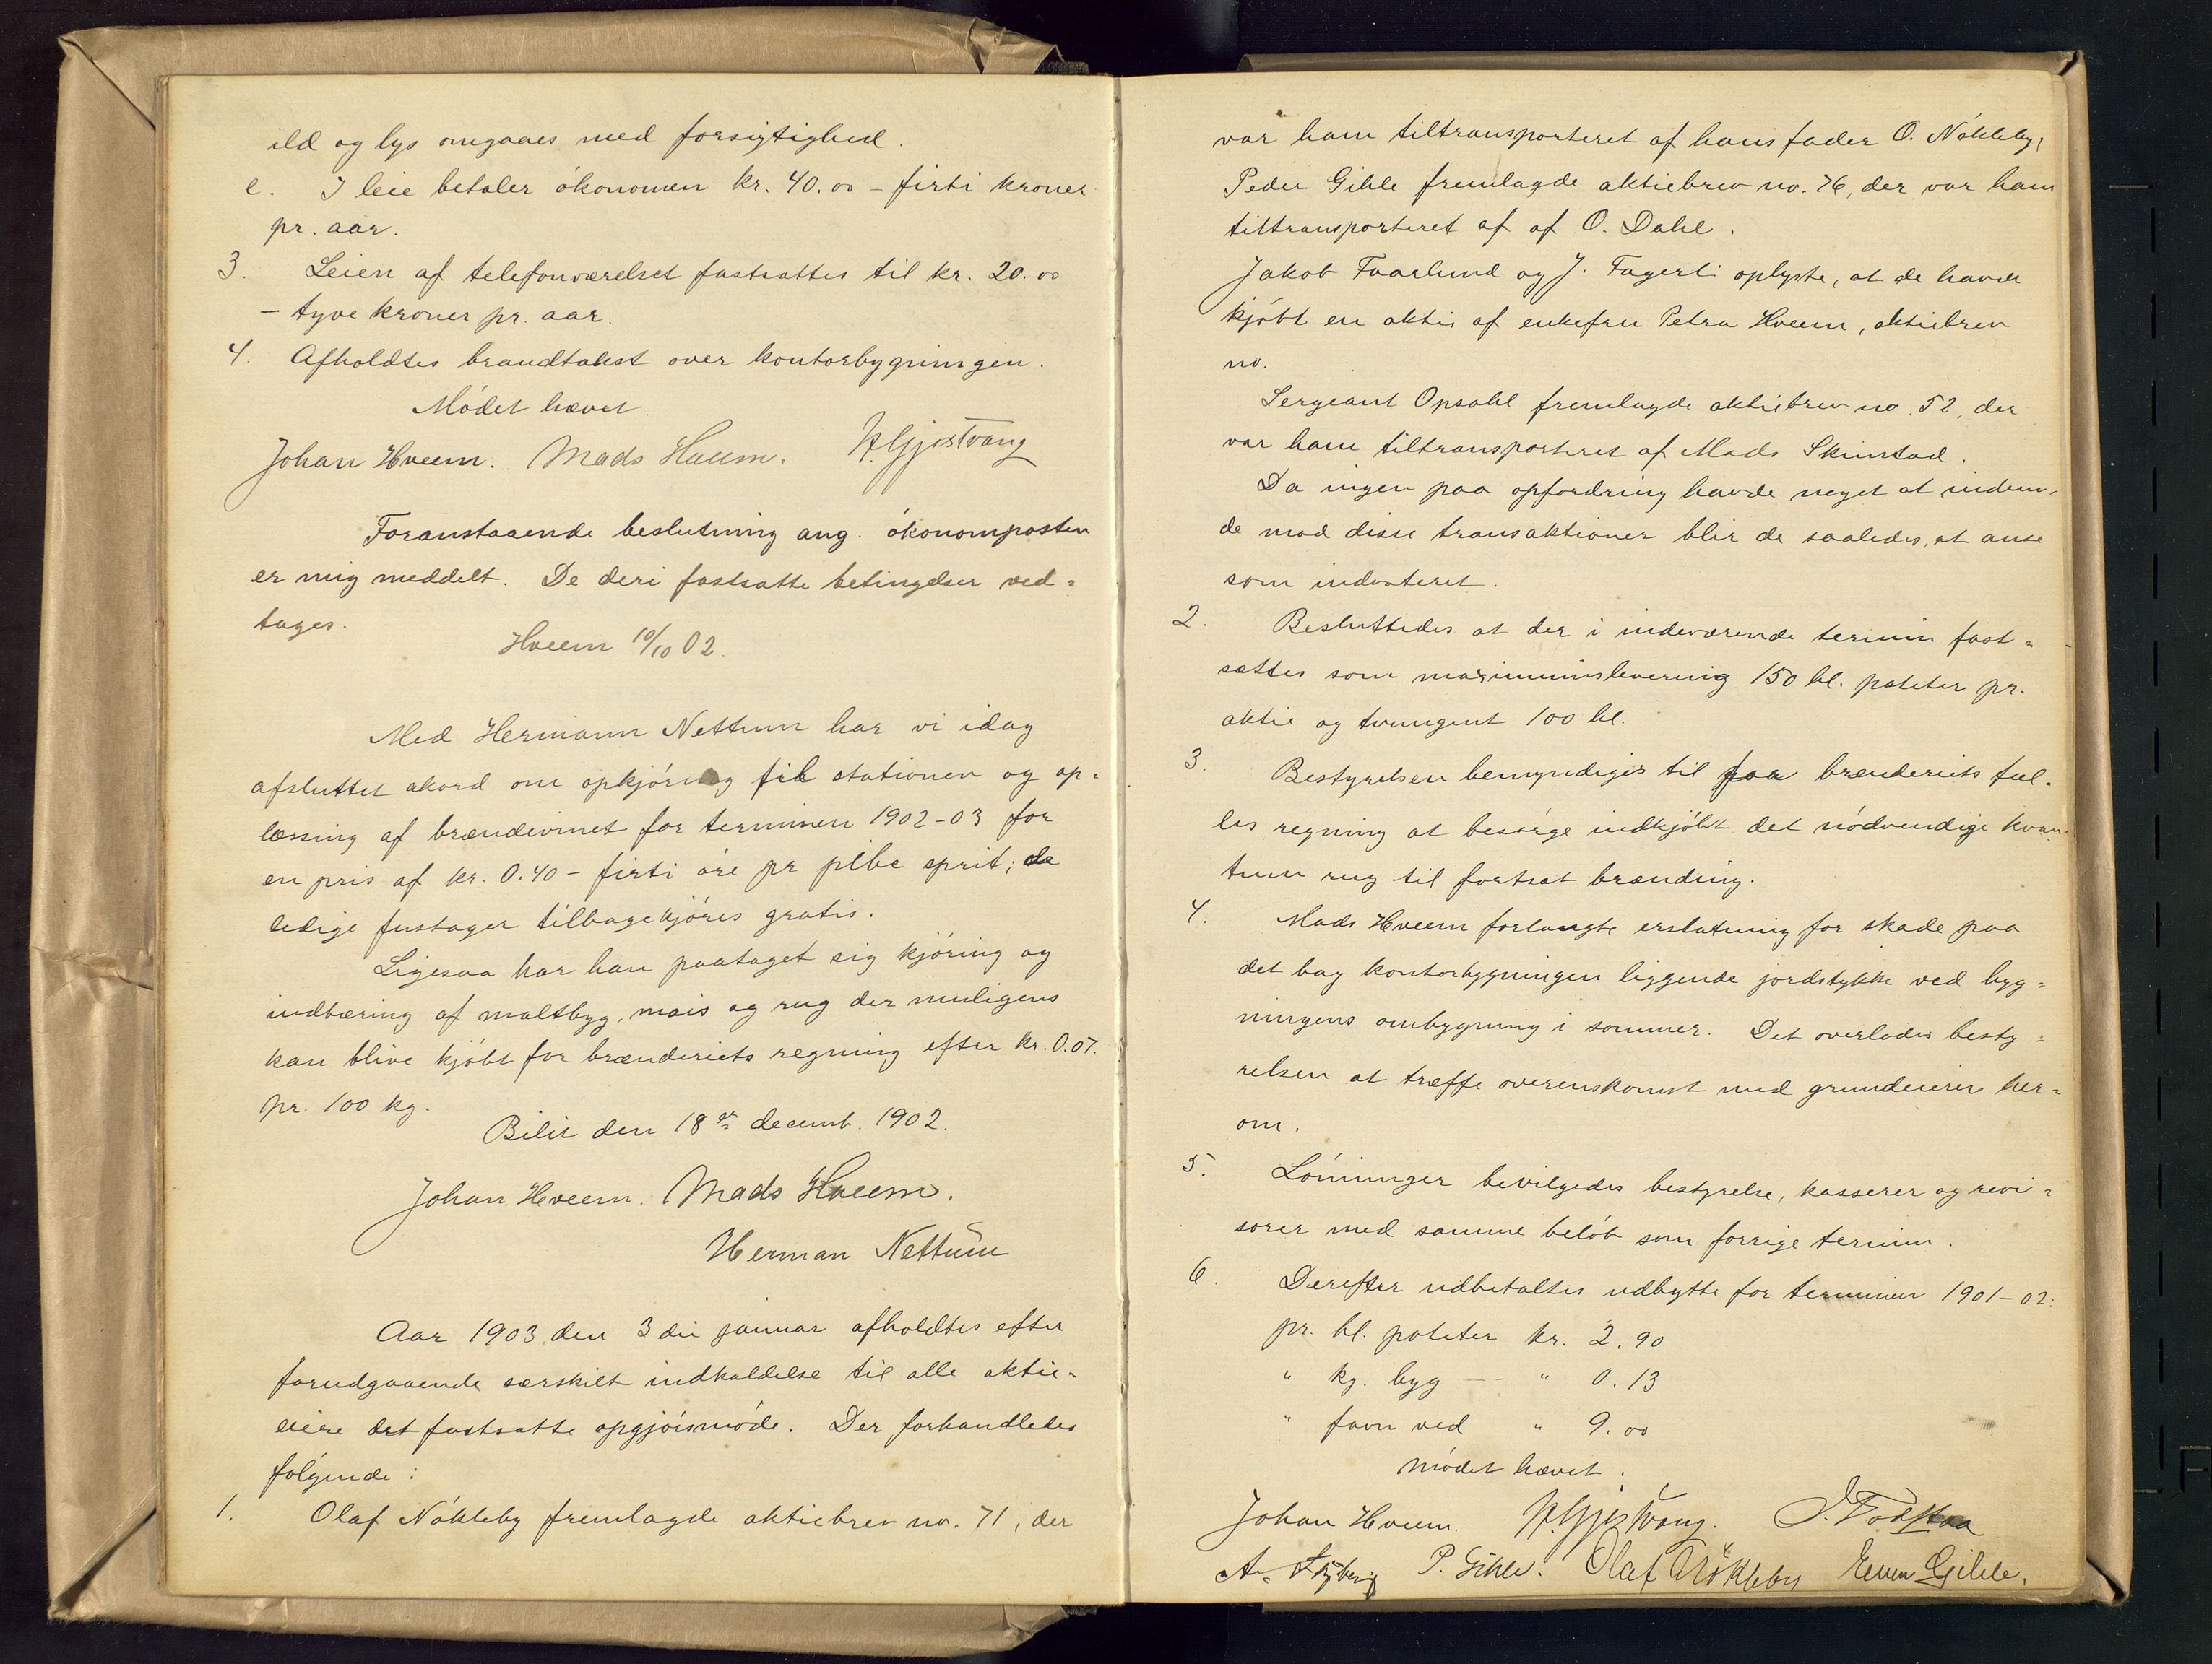 ild og lys omgaaes med forsigtighed.
e. I leie betaler ókonomen kr. 40.00 – firti kroner
pr. aar.
3. Leien af telefonværelset fastsattes til kr. 20.00
– tyve kroner pr. aar.
4. Afholdtes brandtakst over kontorbygningen.
Módet hævet.
Johan Hveem. Mads Hveem. H. Gjøstvang
Foranstaaende beslutning ang. ókonomposten
er mig meddelt. De deri fastsatte betingelser ved=
tages.
Hveem 10/10 02.
Med Hermann Nettum har vi idag
afsluttet akord om opkjóring til stationen og op=
læssing af brændevinet for terminen 1902-03 for
en pris af kr. 0.40 – firti óre pr pibe sprit; de
ledige fustager tilbagekjóres gratis.
Ligesaa har han paataget sig kjóring og
indbæring af maltbyg, mais og rug der muligens
kan blive kjóbt for brænderiets regning efter kr. 0.07.
pr. 100 kg.
Bilit den 18de decemb. 1902.
Johan Hveem. Mads Hveem.
Herman Nettum
Aar 1903 den 3die januar afholdtes efter
forudgaaende særskilt indkaldelse til alle aktie=
eiere det fastsatte opgjórsmóde. Der forhandledes
fólgende:
1. Olaf Nókleby fremlagde aktiebrev no. 71, der
var ham tiltransporteret af hans fader O. Nókleby,
Peder Gihle fremlagde aktiebrev no. 76, der var ham
tiltransporteret af af O. Dahl.
Jakob Faarlund og J. Fagerli oplyste, at de havde
kjóbt en aktie af enkefru Petra Hveem, aktiebrev
no.
Sergeant Opsahl fremlagde aktiebrev no. 52, der
var ham tiltransporteret af Mads Skinstad.
Da ingen paa opfordring havde noget at inden=
de mod disse transaktioner blir de saaledes at anse
som indnoteret.
2. Besluttedes at der i indeværende termin fast=
sættes som maximumslevering 150 hl. poteter pr.
aktie og tvungent 100 hl.
3. Bestyrelsen bemyndiges til paa brænderiets fæl=
les regning at besórge indkjóbt det nódvendige kvan=
tum rug til fortsat brænding.
4. Mads Hveem forlangte erstatning for skade paa
det bag kontorbygningen liggende jordstykke ved byg=
ningens ombygning i sommer. Det overlodes besty=
relsen at træffe overenskomst med grundeieren her=
om.
5. Lónninger bevilgedes bestyrelse, kasserer og revi=
sorer med samme belób som forrige termin.
6. Derefter udbetaltes udbytte for terminen 1901-02:
pr. hl. poteter kr. 2.90
" kg. byg — " 0.13
" favn ved " 9.00
módet hævet.
Johan Hveem. H. Gjøstvang.
P. Gihle. Olaf Nökleby Even Gihle.